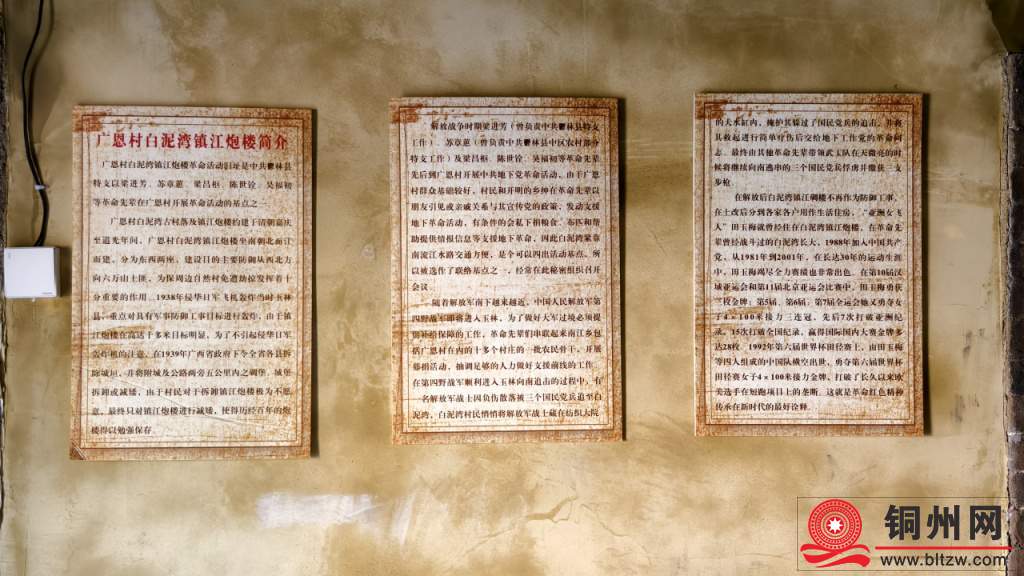 广恩村白泥湾镇江炮楼简介
广恩村白泥湾镇江炮楼革命活动旧址是中共鬱林县
特支以梁进芳、苏章蕙、梁昌柜、陈世诠、吴福初
等革命先辈在广恩村开展革命活动的基点之一
广恩村白泥湾古村落及镇江炮楼约建于清朝嘉庆
至道光年间。广恩村白泥湾镇江炮楼坐南朝北面江
而建。分为东西两座。建设目的主要防御从西北方
向六万山土匪，为保周边自然村免遭劫掠发挥着十
分重要的作用。1938年侵华日军飞机轰炸当时玉林
县，重点对具有军事防御工事目标进行轰炸，由于镇
江炮楼在高达十多米目标明显，为了不引起侵华日军
轰炸机的注意，在1939年广西省政府下令全省各县拆
除城垣，并将附城及公路两旁五公里内之碉堡、城堡
拆卸或减矮，由于村民对于拆卸镇江炮楼极为不愿
意，最终只对镇江炮楼进行减矮，使得历经百年的炮
楼得以勉强保存。
解放战争时期梁进芳（曾负责中共鬱林县特支
工作）、苏章蕙（曾负责中共鬱林县中区农村部分
特支工作）及梁昌柜、陈世诠、吴福初等革命先辈
先后到广恩村开展中共地下党革命活动。由于广恩
村群众基础较好，村民和开明的乡绅在革命先辈以
朋友引见或亲戚关系与其宣传党的政策、发动支援
地下革命活动，有条件的会私下捐粮食、布匹和帮
助提供情报信息等支援地下革命，因此白泥湾梁靠
南流江水路交通方便，是个可以四出活动基点。所
以被选作了联络基点之一，经常在此秘密组织召开
会议
随着解放军南下越来越近，中国人民解放军第
四野战军即将进入玉林，为了做好大军过境必须提
到补给保障的工作，革命先辈们串联起来南江乡包
括广恩村在内的十多个村庄的一批农民骨干，开展
募捐活动，抽调足够的人力做好支援前线的工作。
在第四野战军顺利进入玉林向南追击的过程中，有
一名解放军战士因负伤散落被三个国民党兵追至白
泥湾。白泥湾村民悄悄将解放军战士藏在纺织大院
的大水缸内，掩护其躲过了国民党兵的追击，并将
其救起进行简单疗伤后交给地下工作党的革命同
志。最终由其他革命先辈带领武工队在天微亮的时
候将继续向南逃串的三个国民党兵俘虏并缴获三支
步枪
在解放后白泥湾镇江碉楼不再作为防御工事，
在土改后分到各家各户用作生活住房。“亚洲女飞
人”田玉梅就曾经住在白泥湾镇江炮楼，在革命先
辈曾经战斗过的白泥湾长大。1988年加入中国共产
党。从1981年到2001年，在长达30年的运动生涯
中，田玉梅竭尽全力赛绩也非常出色。在第10届汉
城亚运会和第11届北京亚运会比赛中，田玉梅勇获
三枚金牌；第5届、第6届、第7届全运会她又勇夺女
子4×100米接力三连冠，先后7次打破亚洲纪
录，15次打破全国纪录，赢得国际国内大赛金牌多
达28枚。1992年第六届世界杯田径赛上，由田玉梅
等四人组成的中国队横空出世，勇夺第六届世界杯
田径赛女子4×100米接力金牌，打破了长久以来欧
美选手在短跑项目上的垄断。这就是革命红色精神
传承在新时代的最好诠释。
铜州网
www.bltzw.com